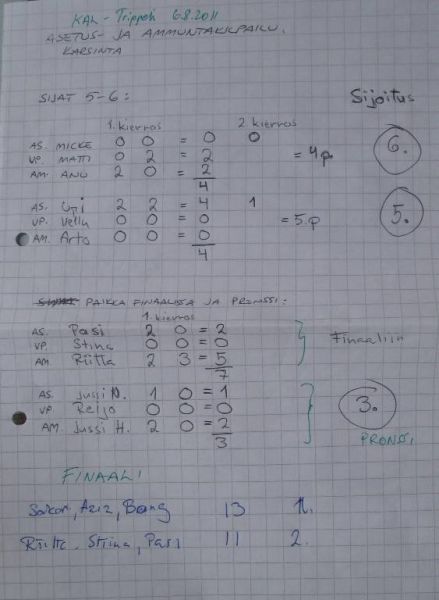 KAL - Trippeli 6.8.2011
ASETUS- JA AMMUNTAKILPAILU,
KARSINTA
SIJAT 5-6:
Sijoitus
1. kierros 2. kierros
AS. MICKE 0 0 = 0 0
VP. MATTI 0 2 = 2 = 4 p. 6.
AM. ANU 2 0 = 2
4
AS. Upi 2 2 = 4 1
VP. Vellu 0 0 = 0 = 5 p 5.
AM. Arto 0 0 = 0
4
PAIKKA FINAALISSA JA PRONSSI:
1. kierros
AS. Pasi 2 0 = 2
VP Stina 0 0 = 0 Finaaliin
AM Riitta 2 3 = 5
7
AS. Jussi N. 1 0 = 1
VP Reijo 0 0 = 0 3.
AM. Jussi H. 2 0 = 2
3 PRONSSI
FINAALI
Sakari, Aziz, Bang 13 1.
Riitta, Stiina, Pasi 11 2.